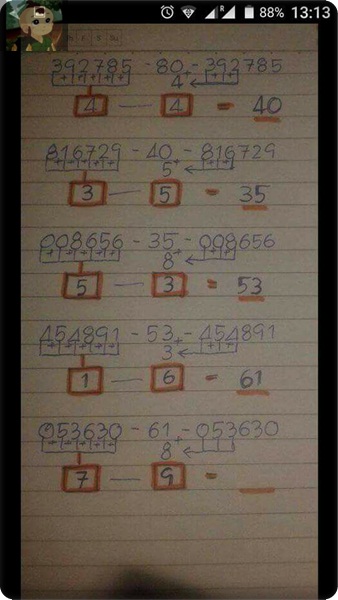 88% 13:13
392785 - 80 + - 392785
+ + + + + 4 ← + +
4 — 4 = 40
816729 - 40 + - 816729
+ + + + + 5 ← + +
3 — 5 = 35
008656 - 35 + - 008656
+ + + + + 8 ← + +
5 — 3 = 53
454891 - 53 + - 454891
+ + + + + 3 ← + +
1 — 6 = 61
053630 - 61 + - 053630
+ + + + + 8 ←
7 — 9 =